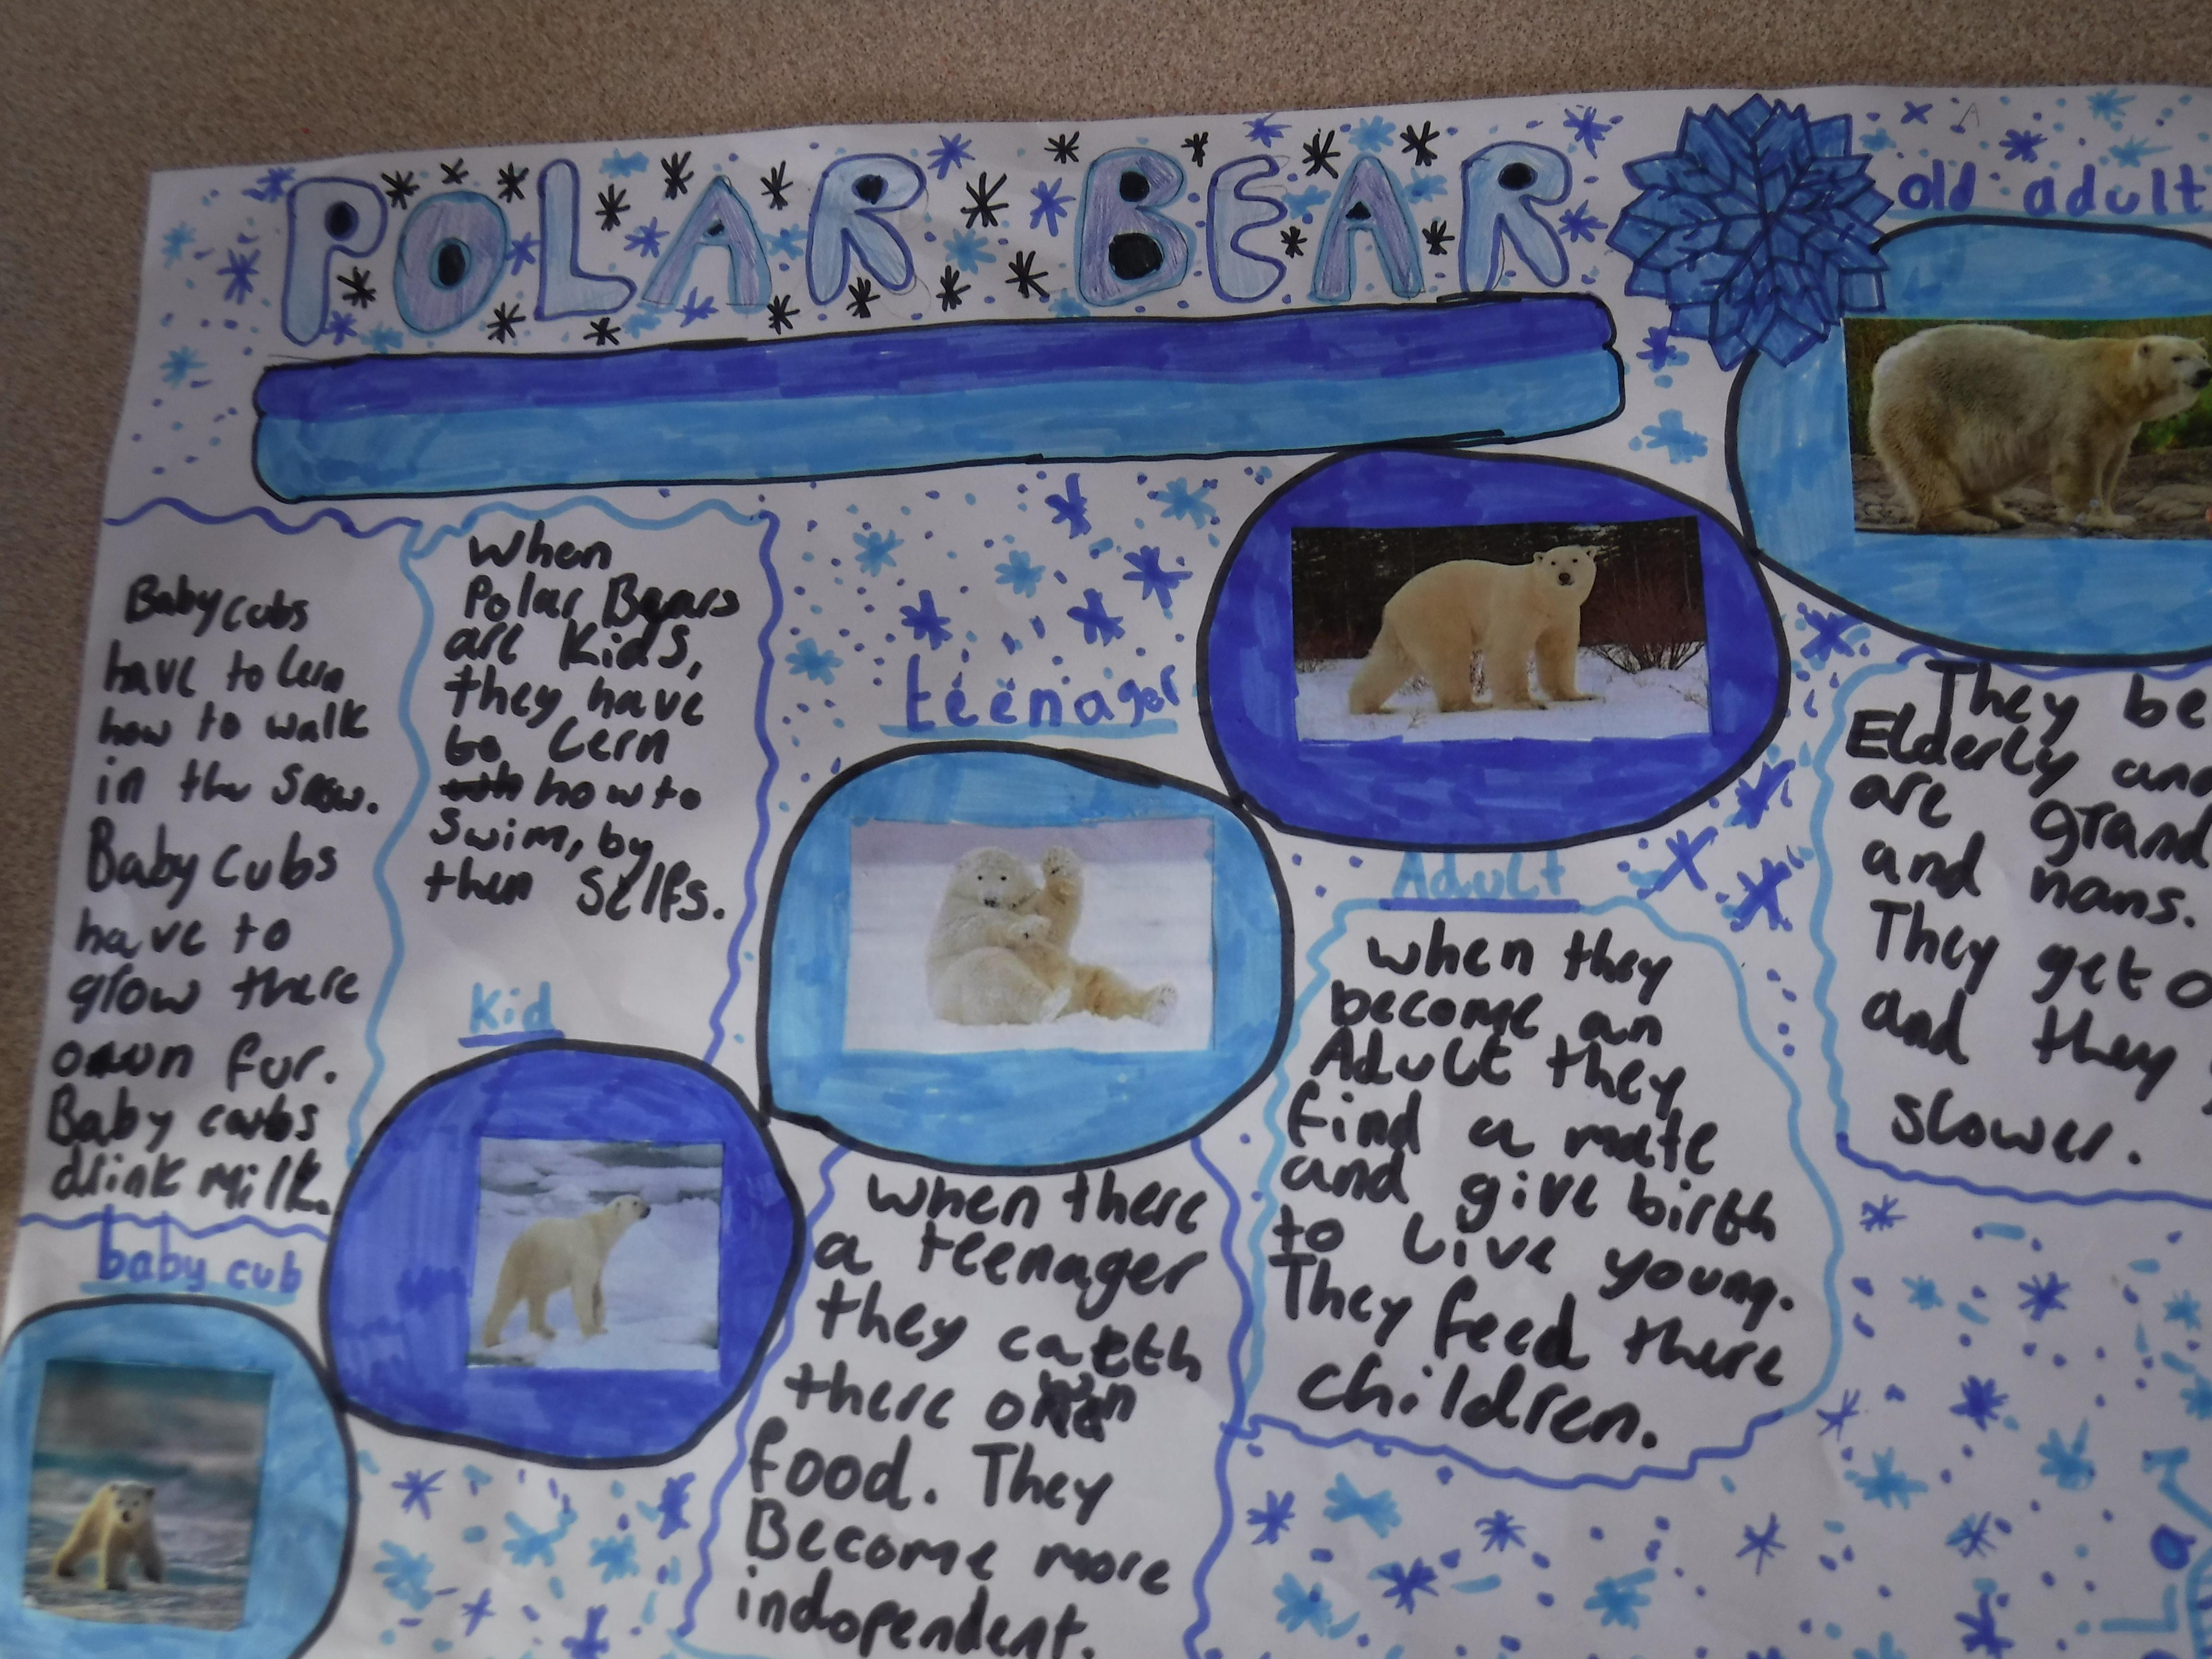 POLAR BEAR
Baby cubs
have to lern
how to walk
in the snow.
Baby cubs
have to
grow there
own fur.
Baby cubs
drink milk.
baby cub
When
Polar Bears
are Kids,
they have
to lern
how to
swim, by
then selfs.
Kid
teenager
when there
a teenager
they catch
there own
food. They
Become more
independent.
Adult
when they
become an
Adult they
find a mate
and give birth
to live young.
They feed there
children.
old adult
They be
Elderly and
are grand
and nans.
They get
and they
slower.